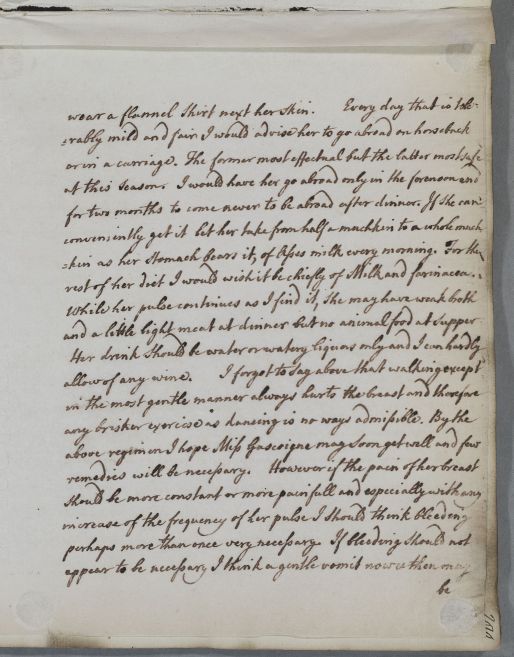 wear a flannel Shirt next her skin. Every day that is tole-
-rably mild and fair I would advise her to go abroad on horseback
or in a carriage. The former most effectual but the latter most safe
at this season. I would have her go abroad only in the forenoon and
for two months to come never to be abroad after dinner. If she can
conveniently get it let her take from half a muchkin to a whole much
-kin as her stomach bears it, of Asses milk every morning. For the
rest of her diet I would wish it be chiefly of Milk and farinacea.
While her pulse continues as I find it, she may have weak broth
and a little light meat at dinner but no animal food at supper.
Her drink should be water or watery liquors only and I can hardly
allow of any wine. I forgot to say above that walking except
in the most gentle manner always hurts the breast and therefore
any brisker exercise as dancing is no ways admissible. By the
above regimen I hope Miss Gascoigne may soon get well and few
remedies will be necessary. However if the pain of her breast
should be more constant or more painfull and especially with any
increase of the frequency of her pulse I should think bleeding
perhaps more than once very necessary. If bleeding should not
appear to be necessary I think a gentle vomit now & then may
be